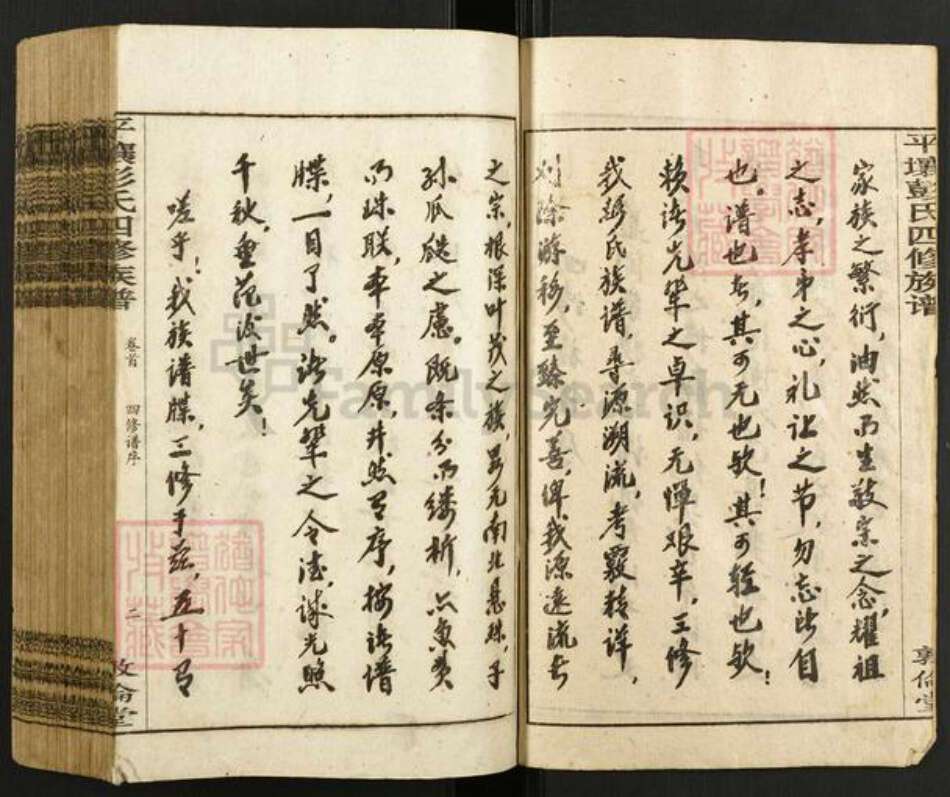 平壤彭氏四修族谱
敦伦堂
家族之繁衍，油然而生敬宗之念，耀祖
之志，孝弟之心，礼让之节，勿忘所自
也。谱也者，其可无也欤！其可轻也欤！
赖诸先辈之卓识，无惮艰辛，三修
我彭氏族谱，寻源溯流，考覈精详，
刈除游移，至臻完善，俾我源远流长
之宗，根深叶茂之族，另无南北悬殊，子
孙瓜瓞之虑。既条分而缕析，亦鱼贯
而珠联，本本原原，井然有序，披诸谱
牒，一目了然。诸先辈之令德，诚光照
千秋，垂范后世矣！
嗟乎！我族谱牒，三修于兹，五十有
平壤彭氏四修族谱
卷首
四修谱序
二
敦伦堂
FamilySearch